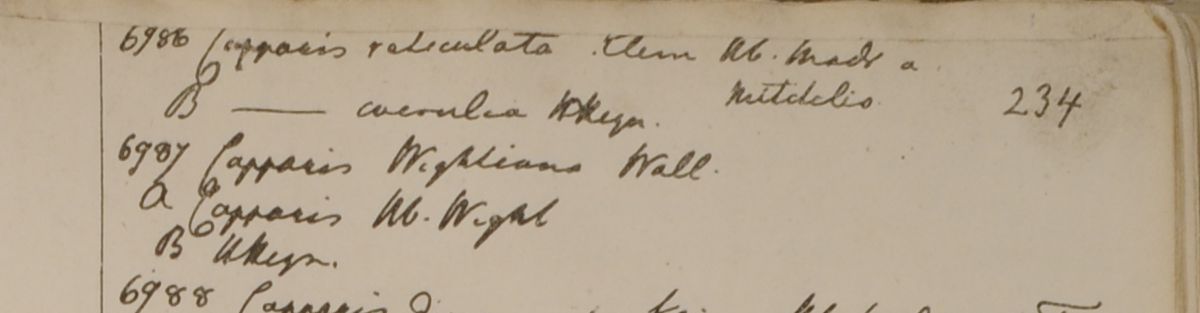 6986 Capparis reticulata Klein Hb. Madr a
B — coerulea HHeyn. 234
6987 Capparis Wightiana Wall.
a Capparis Hb. Wight
B HHeyn.
6988 Capparis